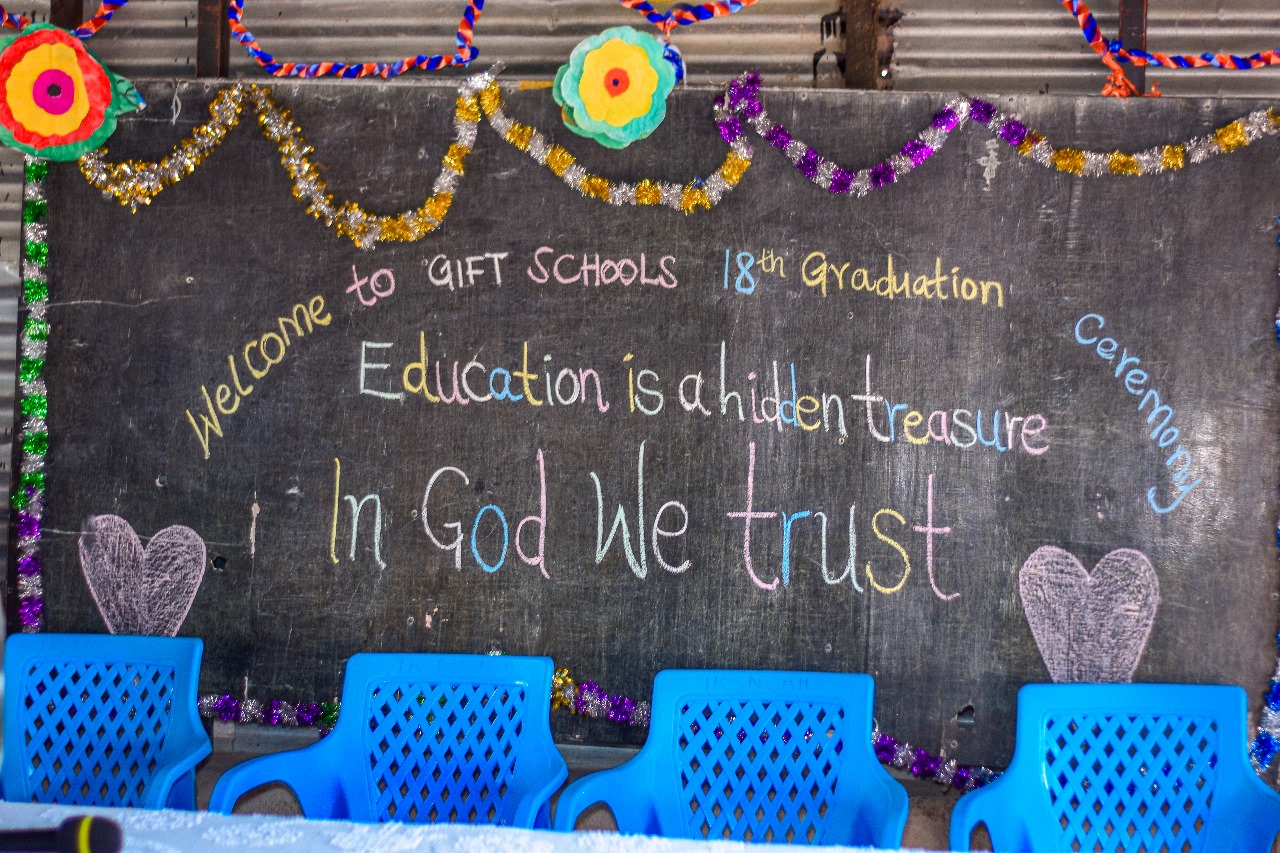 Welcome to GIFT SCHOOLS 18th Graduation Ceremony
Education is a hidden treasure
In God We trust